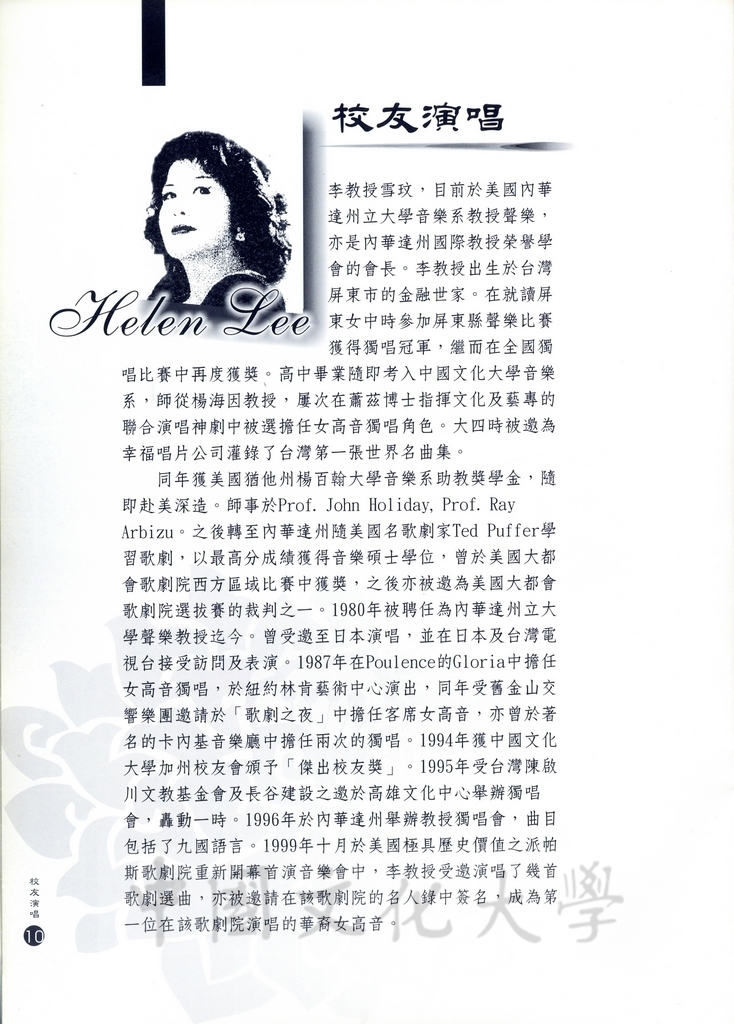 校友演唱
Helen Lee
李教授雪玟，目前於美國內華
達州立大學音樂系教授聲樂，
亦是內華達州國際教授榮譽學
會的會長。李教授出生於台灣
屏東市的金融世家。在就讀屏
東女中時參加屏東縣聲樂比賽
獲得獨唱冠軍，繼而在全國獨
唱比賽中再度獲獎。高中畢業隨即考入中國文化大學音樂
系，師從楊海因教授，屢次在蕭茲博士指揮文化及藝專的
聯合演唱神劇中被選擔任女高音獨唱角色。大四時被邀為
幸福唱片公司灌錄了台灣第一張世界名曲集。
同年獲美國猶他州楊百翰大學音樂系助教獎學金，隨
即赴美深造。師事於Prof. John Holiday, Prof. Ray
Arbizu。之後轉至內華達州隨美國名歌劇家Ted Puffer學
習歌劇，以最高分成績獲得音樂碩士學位，曾於美國大都
會歌劇院西方區域比賽中獲獎，之後亦被邀為美國大都會
歌劇院選拔賽的裁判之一。1980年被聘任為內華達州立大
學聲樂教授迄今。曾受邀至日本演唱，並在日本及台灣電
視台接受訪問及表演。1987年在Poulence的Gloria中擔任
女高音獨唱，於紐約林肯藝術中心演出，同年受舊金山交
響樂團邀請於「歌劇之夜」中擔任客席女高音，亦曾於著
名的卡內基音樂廳中擔任兩次的獨唱。1994年獲中國文化
大學加州校友會頒予「傑出校友獎」。1995年受台灣陳啟
川文教基金會及長谷建設之邀於高雄文化中心舉辦獨唱
會，轟動一時。1996年於內華達州舉辦教授獨唱會，曲目
包括了九國語言。1999年十月於美國極具歷史價值之派帕
斯歌劇院重新開幕首演音樂會中，李教授受邀演唱了幾首
歌劇選曲，亦被邀請在該歌劇院的名人錄中簽名，成為第
一位在該歌劇院演唱的華裔女高音。
中國文化大學
校友演唱
10